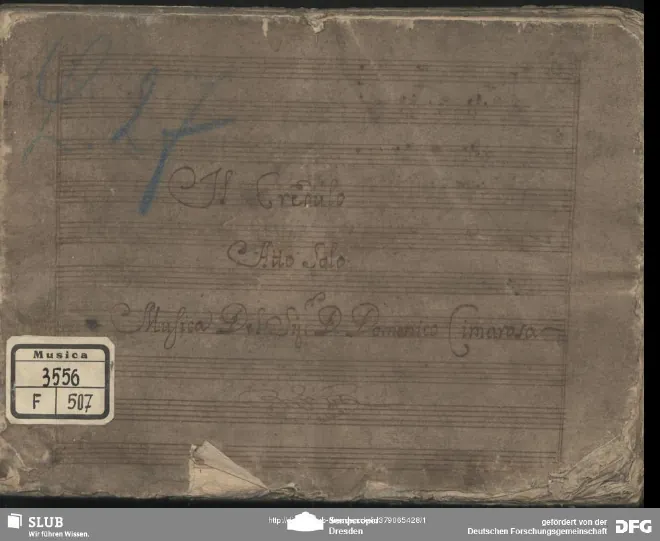 L 2 f
Il Credulo
Atto Solo
Musica Del Sig.r D. Domenico Cimarosa
Musica
3556
F 507
SLUB
Wir führen Wissen.
Dresden
gefördert von der
Deutschen Forschungsgemeinschaft
DFG